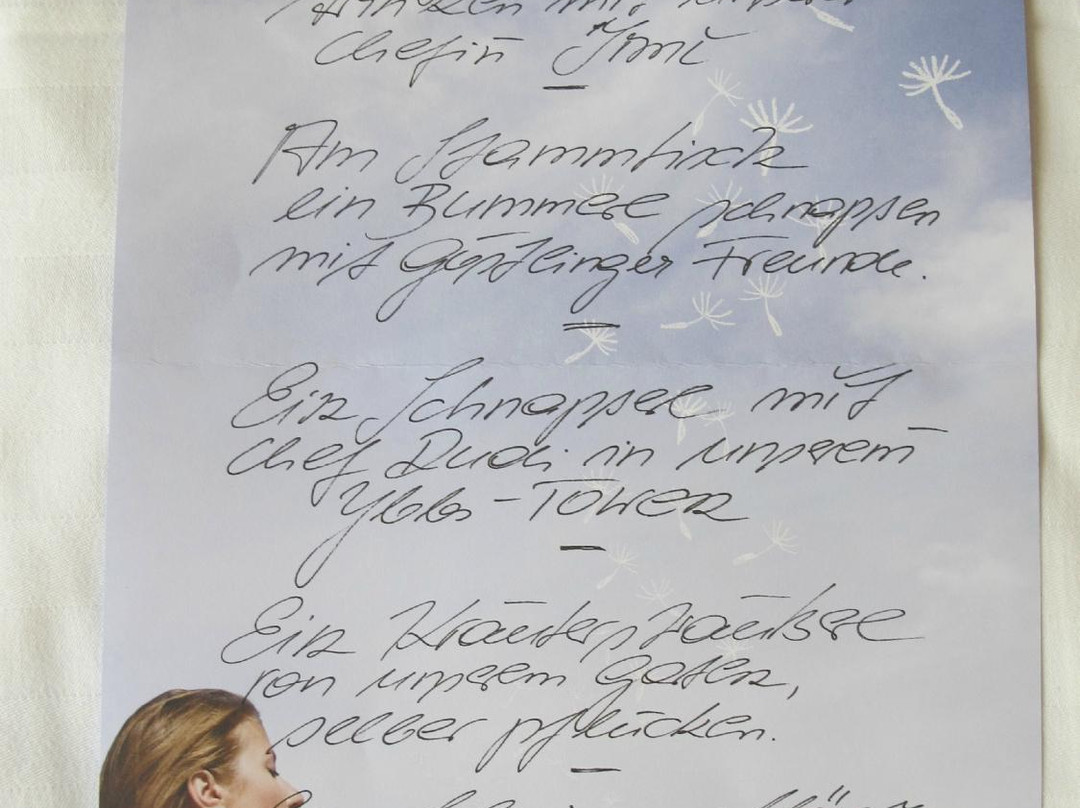 trinken mit unserer
Chefin Irmi
Am Stammtisch
ein Bummerl schnapsen
mit Göstlinger Freunde.
Ein Schnapserl mit
Chef Rudi in unserem
Ybbs-Tower
Ein Kräutersträußerl
von unserem Garten,
selber pflücken.